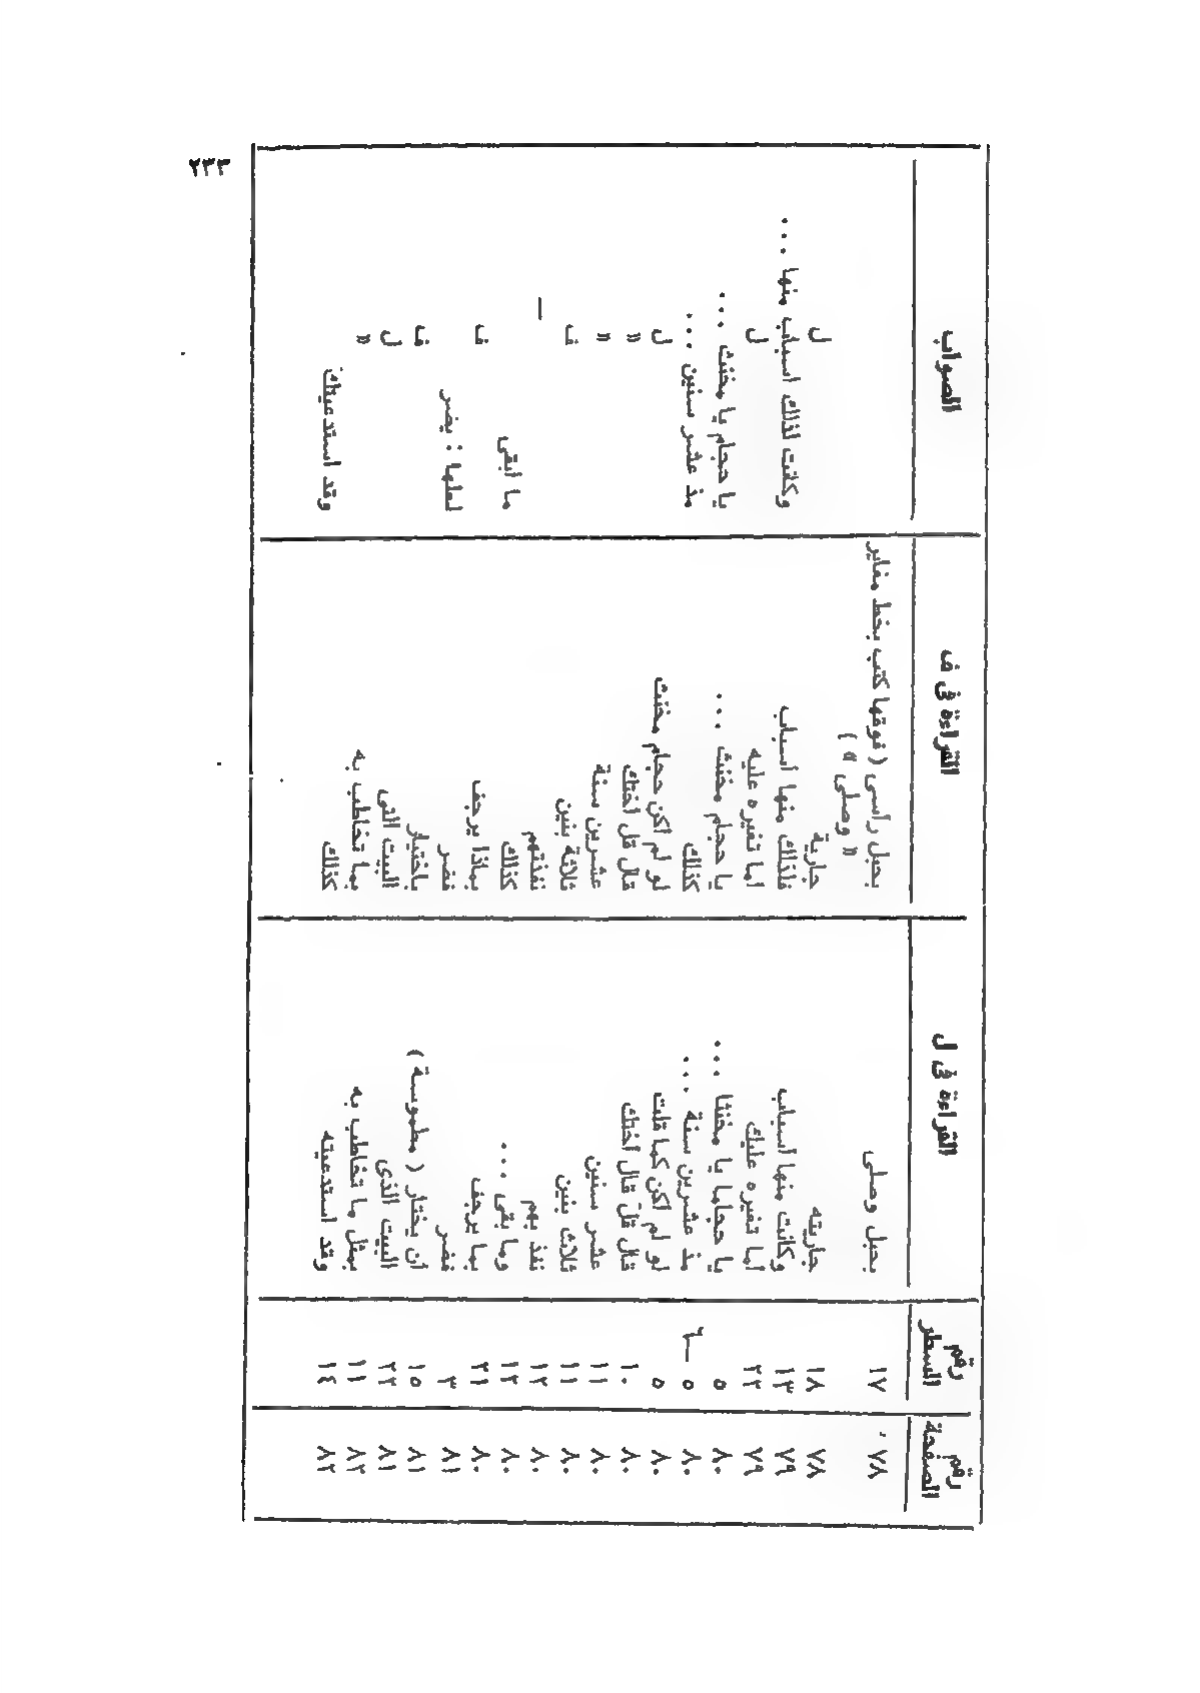 رقم الصفحة رقم السطر القراءة فى ل القراءة فى ف الصواب
٧٨ ١٧ بحبل وصلى بحبل رأسى ( فوقها كتب بخط مغاير
« وصلى » )
٧٨ ١٨ جاريته جارية ل
٧٩ ١٣ وكانت منها أسباب فلذلك منها أسباب وكانت لذلك أسباب منها ...
٧٩ ٢٢ أما تغيره عليك أما تغيره عليه ل
٨٠ ٥ يا حجاما يا مخنثا ... يا حجام مخنث ... يا حجام يا مخنث ...
٨٠ ٥ – ٦ مذ عشرين سنة ... كذلك مذ عشر سنين ...
٨٠ ٥ لو لم أكن كما قلت لو لم أكن حجام مخنث ل
٨٠ ١٠ قال قل قال أختك قال قل أختك »
٨٠ ١١ عشر سنين عشرين سنة »
٨٠ ١١ ثلاث بنين ثلاثة بنين ف
٨٠ ١٢ نفذ بهم نفذتهم —
٨٠ ١٣ وما بقى ... كذلك ما أبقى
٨٠ ٢١ بما يرجف بماذا يرجف ف
٨١ ٣ فضر فضر لعلها : يضر
٨١ ١٥ أن يختار ( مطموسة ) باختيار ف
٨١ ٢٢ البيت الذى البيت التى ل
٨٢ ١١ بمثل ما تخاطب به بما تخاطب به »
٨٢ ١٤ وقد استدعيته كذلك وقد استدعيتك
٢٣٣